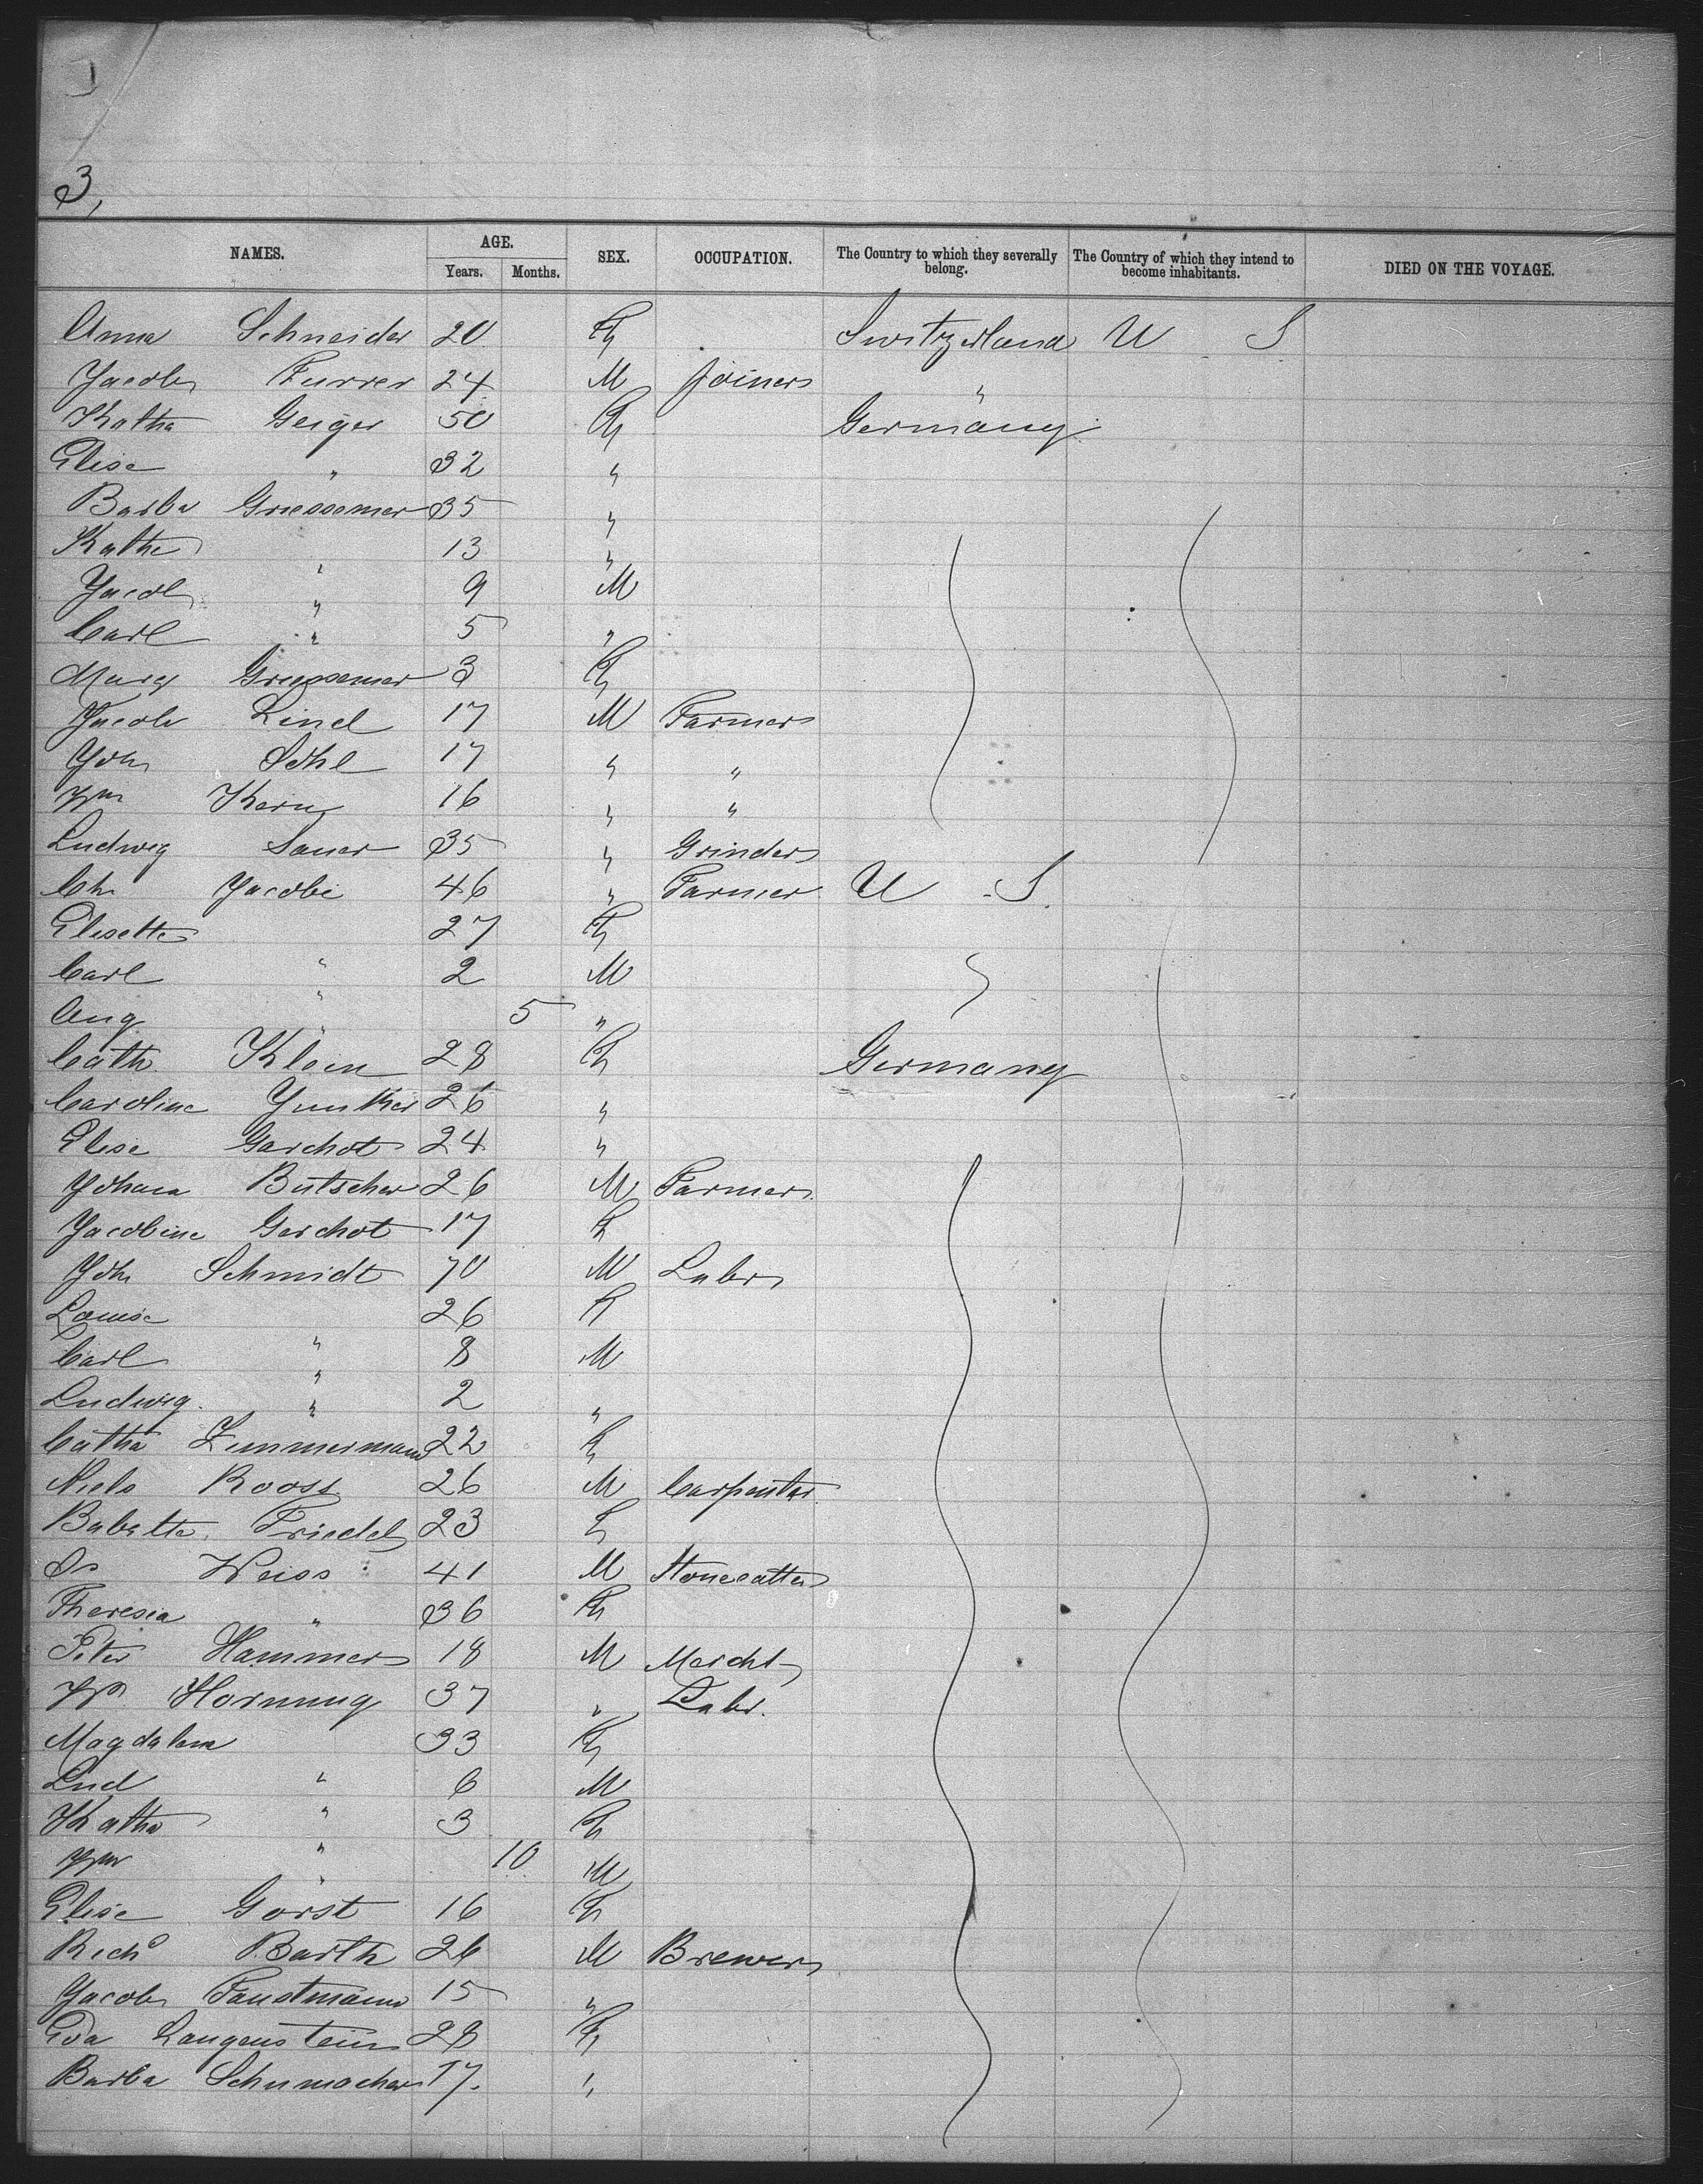 3,
NAMES. AGE. SEX. OCCUPATION. The Country to which they severally belong. The Country of which they intend to become inhabitants. DIED ON THE VOYAGE.
Years. Months.
Anna Schneider 20 F Switzerland U S
Jacob Furrer 24 M Joiner "
Katha Geiger 50 F Germany
Elise " 32 "
Barba Griessemer 35 "
Kathe " 13 "
Jacob " 9 M
Carl " 5 "
Marg Griessemer 3 F
Jacob Lind 17 M Farmer
Joh Sohl 17 " "
Wm Kern 16 " "
Ludwig Sauer 35 " Grinder
Ch Jacobi 46 " Farmer U S
Elisette " 27 F
Carl " 2 M
Aug " 5 "
Cath Klein 28 F Germany
Caroline Junker 26 "
Elise Garchot 24 "
Johann Butscher 26 M Farmer
Jacobine Garchot 17 F
Joh Schmidt 70 M Labr
Louise " 26 F
Carl " 8 M
Ludwig " 2 "
Catha Zimmermann 22 F
Niels Rooss 26 M Carpenter
Babette Friedel 23 F
Weiss 41 M Stonecutter
Theresia " 36 F
Peter Hammer 18 M Mercht
Wm Hornung 37 " Labr.
Magdalena " 33 F
Lud " 6 M
Katha " 3 F
Wm " 10 M
Elise Gorst 16 F
Richd Barth 26 M Brewer
Jacob Faustmann 15 "
Eva Langenstein 28 F
Barba Schumacher 17. "